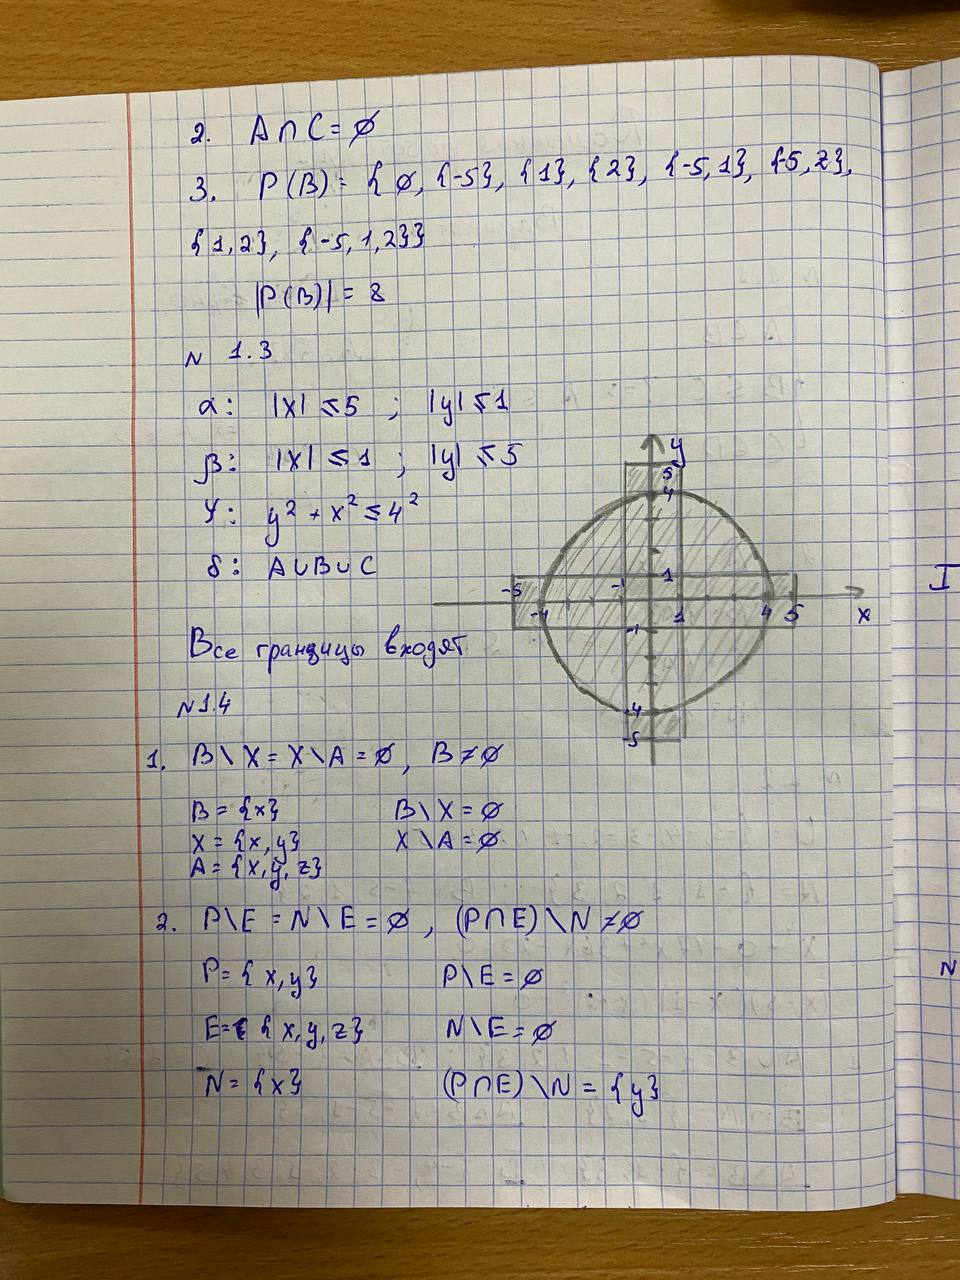 2. A∩C=∅
3. P(B)= {∅, {-5}, {1}, {2}, {-5,1}, {-5,2},
{1,2}, {-5,1,2}}
|P(B)|= 8
N 1.3
α: |x| ≤5 ; |y| ≤1
β: |x| ≤1 ; |y| ≤5
γ: y² + x² ≤4²
δ: A∪B∪C
Все границы входят
y
5
4
-5 -1 1
-4 1 4 5 x
-1
-4
-5
N1.4
1. B\X = X\A = ∅, B≠∅
B = {x} B\X = ∅
X = {x,y} X\A = ∅
A = {x,y,z}
2. P\E = N\E = ∅, (P∩E)\N ≠∅
P= {x,y} P\E = ∅
E= {x,y,z} N\E = ∅
N= {x} (P∩E)\N = {y}
I
N